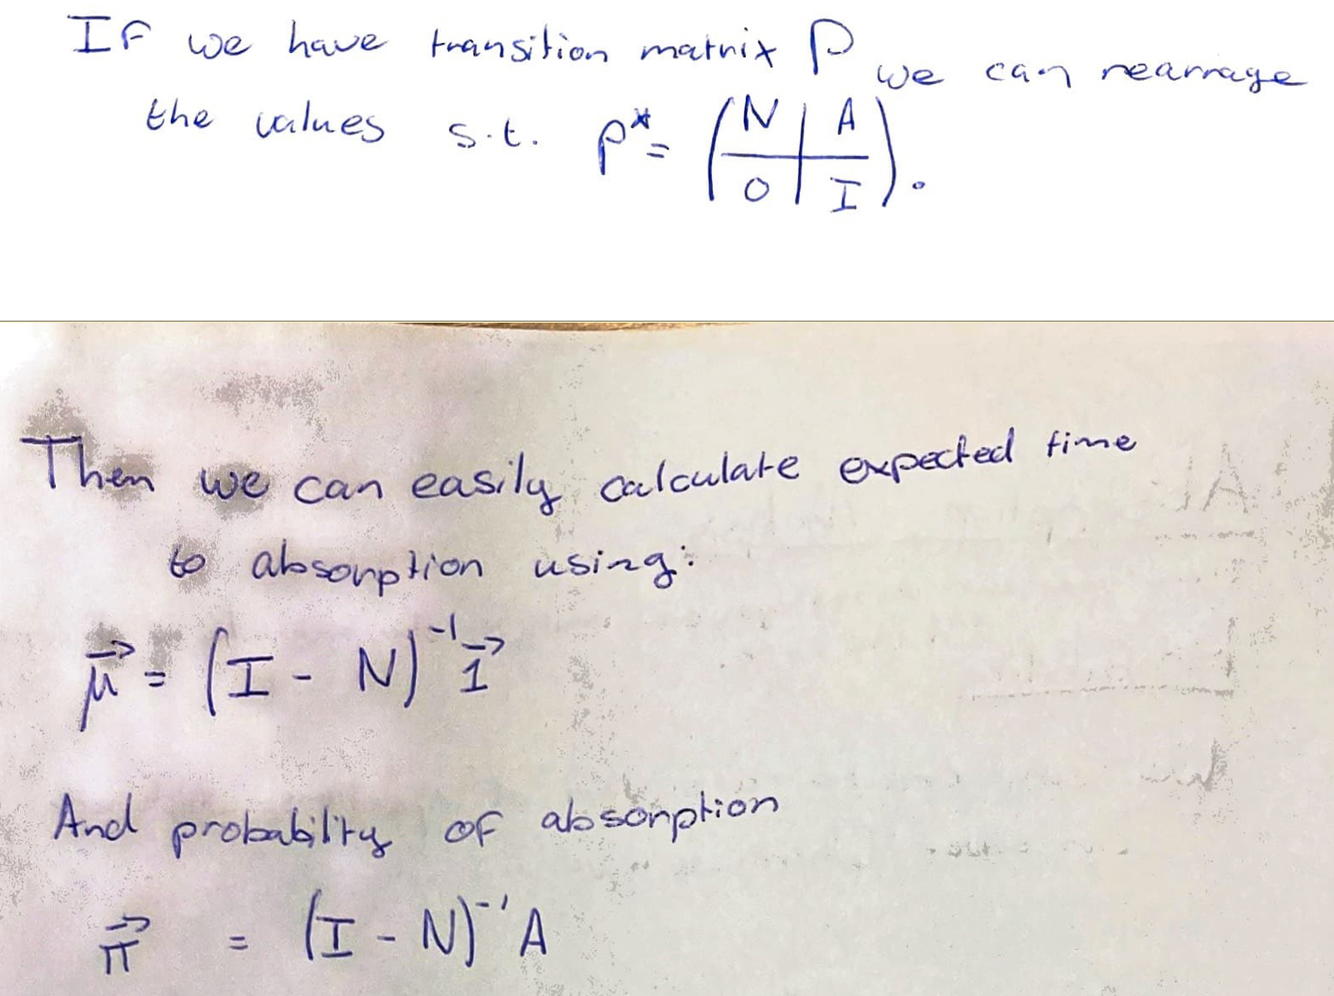 If we have transition matrix P we can rearrage
the values s.t. P* = (N | A
0 | I).
Then we can easily calculate expected time
to absorption using:
μ⃗ = (I - N)⁻¹ 1⃗
And probability of absorption
π⃗ = (I - N)⁻¹ A